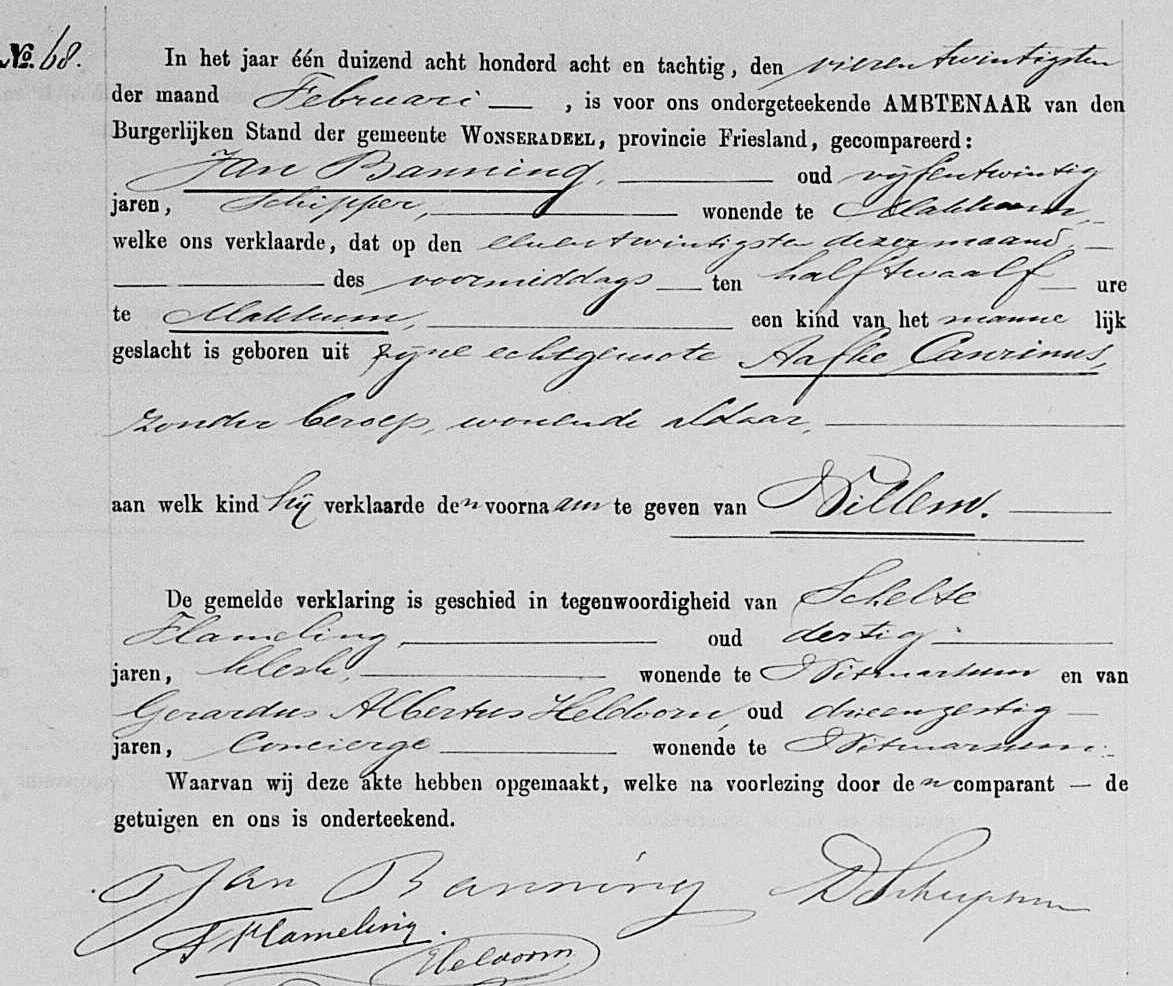 No. 68.
In het jaar één duizend acht honderd acht en tachtig, den vierentwintigsten
der maand Februari — , is voor ons ondergeteekende AMBTENAAR van den
Burgerlijken Stand der gemeente WONSERADEEL, provincie Friesland, gecompareerd:
Jan Banning, — oud vijfentwintig
jaren, Schipper, — wonende te Makkum, —
welke ons verklaarde, dat op den eenentwintigsten dezer maand, —
— des voormiddags — ten half twaalf — ure
te Makkum, — een kind van het manne lijk
geslacht is geboren uit zijne echtgenoote Aafke Canrinus,
zonder beroep, wonende aldaar, —
aan welk kind hij verklaarde den voornaam te geven van Willem. —
De gemelde verklaring is geschied in tegenwoordigheid van Schelte
Flameling, — oud dertig —
jaren, klerk, — wonende te Witmarsum en van
Gerardus Albertus Heldoorn, oud drieenzestig —
jaren, Concierge — wonende te Witmarsum.
Waarvan wij deze akte hebben opgemaakt, welke na voorlezing door den comparant — de
getuigen en ons is onderteekend.
Jan Banning
S Flameling.
Heldoorn